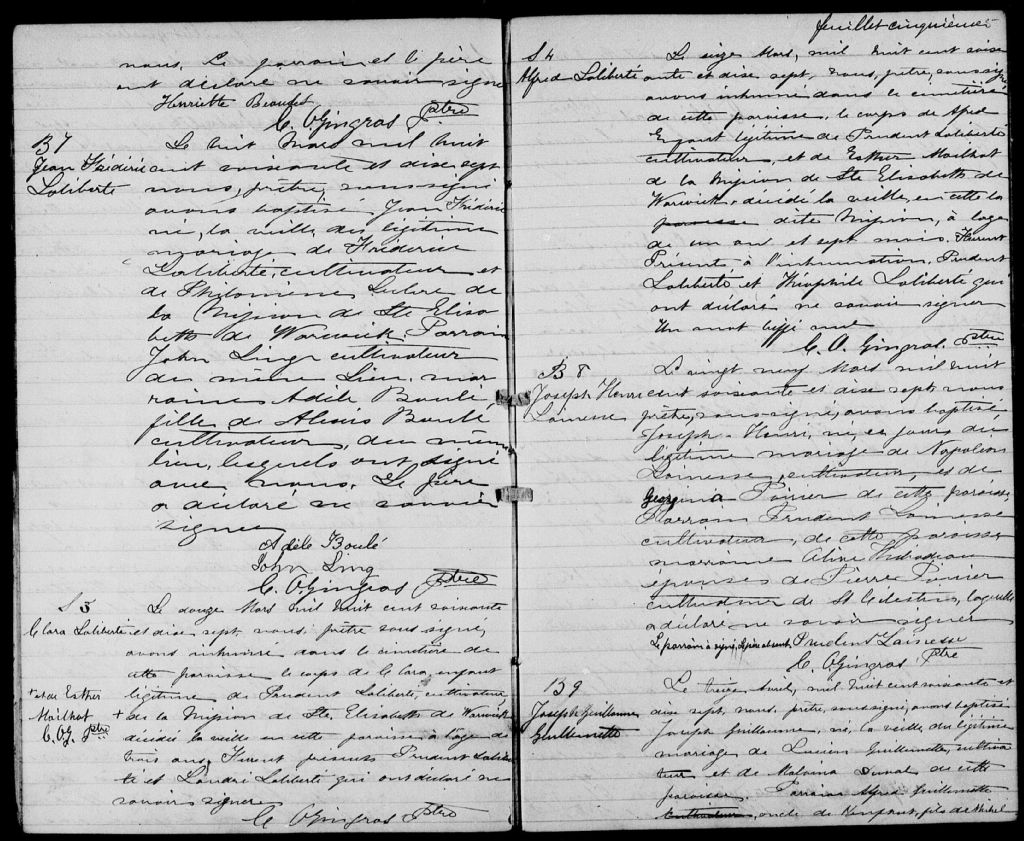 nous. Le parrain et le père
ont déclaré ne savoir signer
Henriette Beaudet
C. O. Gingras Ptre
B7
Jean Frédéric
Laliberté
Le huit Mars mil huit
cent soixante et dix sept
nous, prêtre, soussigné
avons baptisé Jean Frédéric
né, la veille, du légitime
mariage de Frédéric
Laliberté, cultivateur et
de Philomène Leclerc de
la Mission de Ste Elisa
beth de Warwick. Parrain
John Ling cultivateur
du même Lieu, mar
raine Adèle Boulé
fille de Alexis Boulé
cultivateur, du même
lieu, lesquels ont signé
avec nous. Le père
a déclaré ne savoir
signer
Adèle Boulé
John Ling
C. O. Gingras Ptre
S5
Clara Laliberté
Le douze Mars mil huit cent soixante
et dix sept, nous, prêtre sous signé,
avons inhumé dans le cimetière de
cette paroisse le corps de Clara, enfant
légitime de Prudent Laliberté, cultivateur,
+ et de Esther
Mailhot
C. O. G. Ptre
+ de la Mission de Ste. Elisabeth de Warwick
décédée la veille en cette paroisse, à l'age de
trois ans. Furent présents Prudent Laliber
té et Landré Laliberté qui ont déclaré ne
savoir signer
C. O. Gingras Ptre
feuillet cinquième
S4
Alfred Laliberté
Le seize Mars, mil huit cent soix
ante et dix sept, nous, prêtre, soussigné
avons inhumé dans le cimetière
de cette paroisse, le corps de Alfred
Enfant légitime de Prudent Laliberté
cultivateur, et de Esther Mailhot
de la Mission de Ste Elisabeth de
Warwick, décédé la veille, en cette la
paroisse dite Mission, à l'age
de un an et sept mois. Furent
Présents à l'inhumation, Prudent
Laliberté et Théophile Laliberté qui
ont déclaré ne savoir signer
Un mot biffé nul
C. O. Gingras, Ptre
B8
Joseph Henri
Lainesse
Le vingt neuf Mars mil huit
cent soixante et dix sept nous
prêtre, sous-signé, avons baptisé
Joseph-Henri, né, ce jour, du
légitime mariage de Napoléon
Lainesse, cultivateur, et de
Georgina Poirier de cette paroisse,
Parrain Prudent Lainesse
cultivateur, de cette paroisse
marraine Olive Thibodeau
épouse de Pierre Poirier
cultivateur de St Celestin, laquelle
a déclaré ne savoir signer
Le parrain a signé, le père absent. Prudent Lainesse
C. O. Gingras Ptre
B9
Joseph Guillaume
Guillemette
Le treize Avril, mil huit cent soixante et
dix sept, nous, prêtre, soussigné, avons baptisé
Joseph Guillaume, né, la veille du légitime
mariage de Lucien Guillemette, cultiva
teur et de Malvina Duval de cette
paroisse. Parrain Alfred Guillemette
cultivateur, oncle de l'enfant, fils de Michel